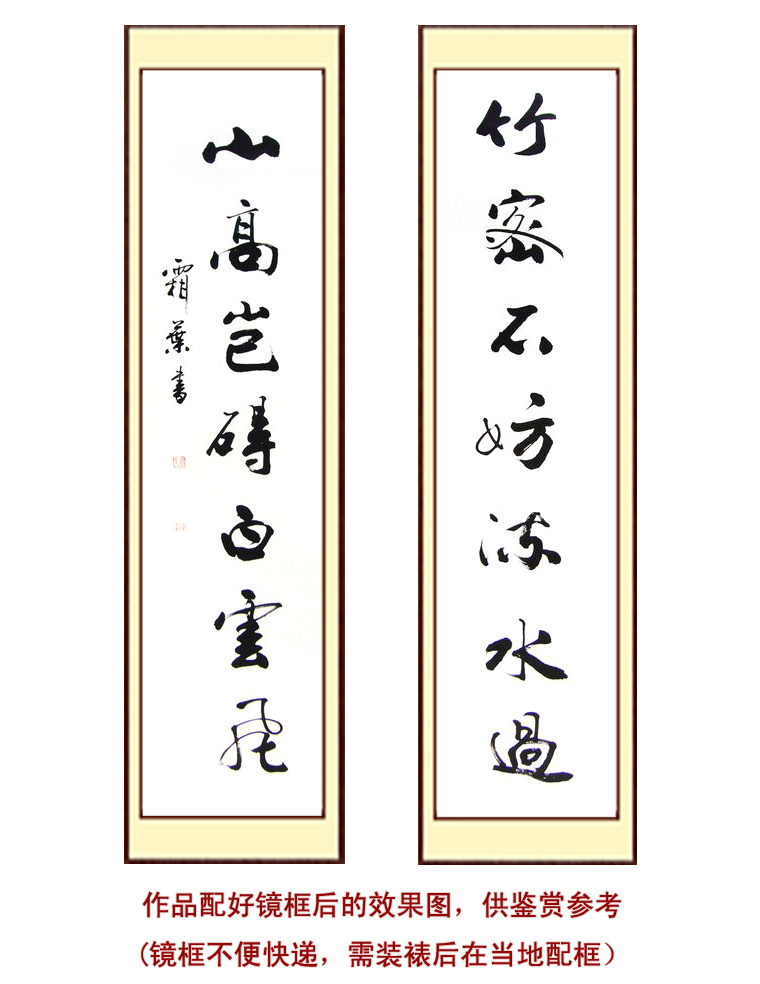 竹密不妨流水過
山高豈礙白雲飛
霜葉書
作品配好镜框后的效果图，供鉴赏参考
(镜框不便快递，需装裱后在当地配框）